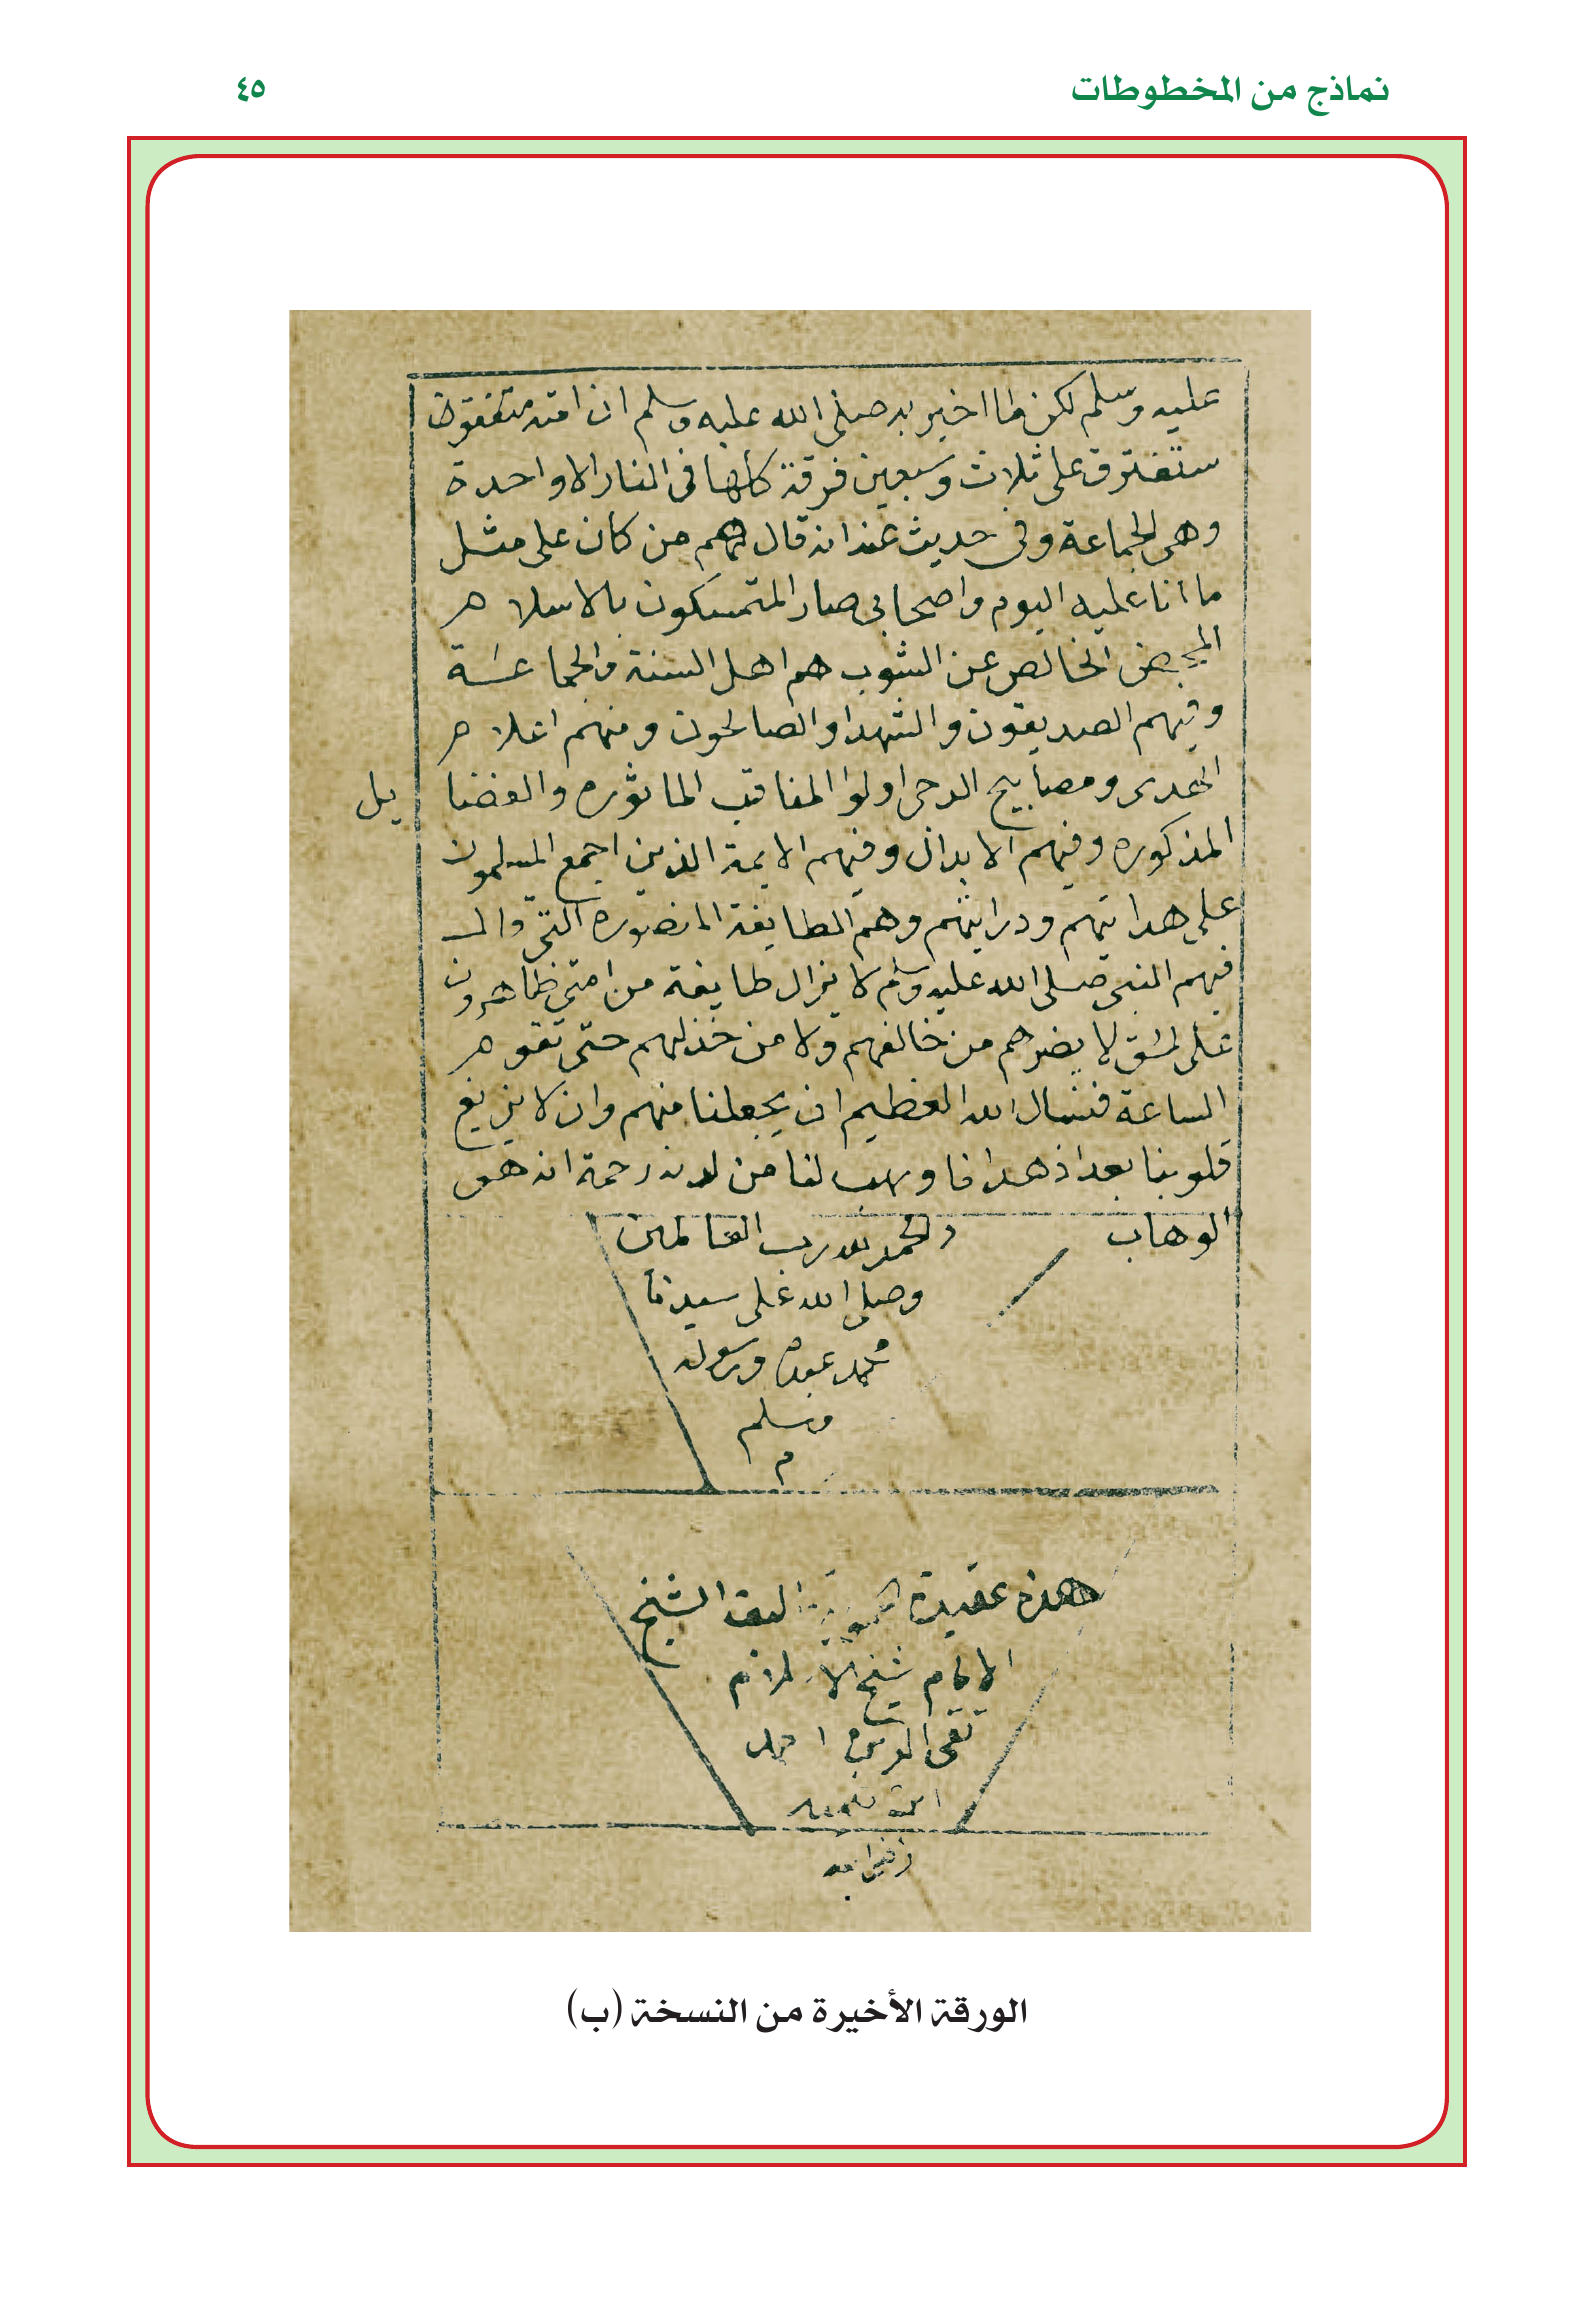 نماذج من المخطوطات
٤٥
عليه وسلم لكن لما اخبر به صلى الله عليه وسلم ان امته
ستفترق على ثلاث وسبعين فرقة كلها فى النار الا واحدة
وهى الجماعة وفى حديث عنه انه قال هم من كان على مثل
ما انا عليه اليوم واصحابى صار المتمسكون بالاسلام
المحض الخالص عن الشوب هم اهل السنة والجماعة
وفيهم الصديقون والشهدا والصالحون ومنهم اعلام
الهدى ومصابيح الدجى اولوا المناقب الماثوره والفضايل
المذكوره وفيهم الابدال وفيهم الايمة الذين اجمع المسلمون
على هدايتهم ودرايتهم وهم الطايفة المنصوره التى قال
فيهم النبى صلى الله عليه وسلم لا يزال طايفة من امتى ظاهرون
على الحق لا يضرهم من خالفهم ولا من خذلهم حتى تقوم
الساعة فنسال الله العظيم ان يجعلنا منهم وان لا يزيغ
قلوبنا بعد اذ هدانا ويهب لنا من لدنه رحمة انه هو
الوهاب والحمد لله رب العالمين
وصلى الله على سيدنا
محمد عبده ورسوله
وسلم
م
هذه عقيدة الحموية الشيخ
الامام شيخ الاسلام
تقى الدين احمد
ابن تيمية
الورقة الأخيرة من النسخة (ب)